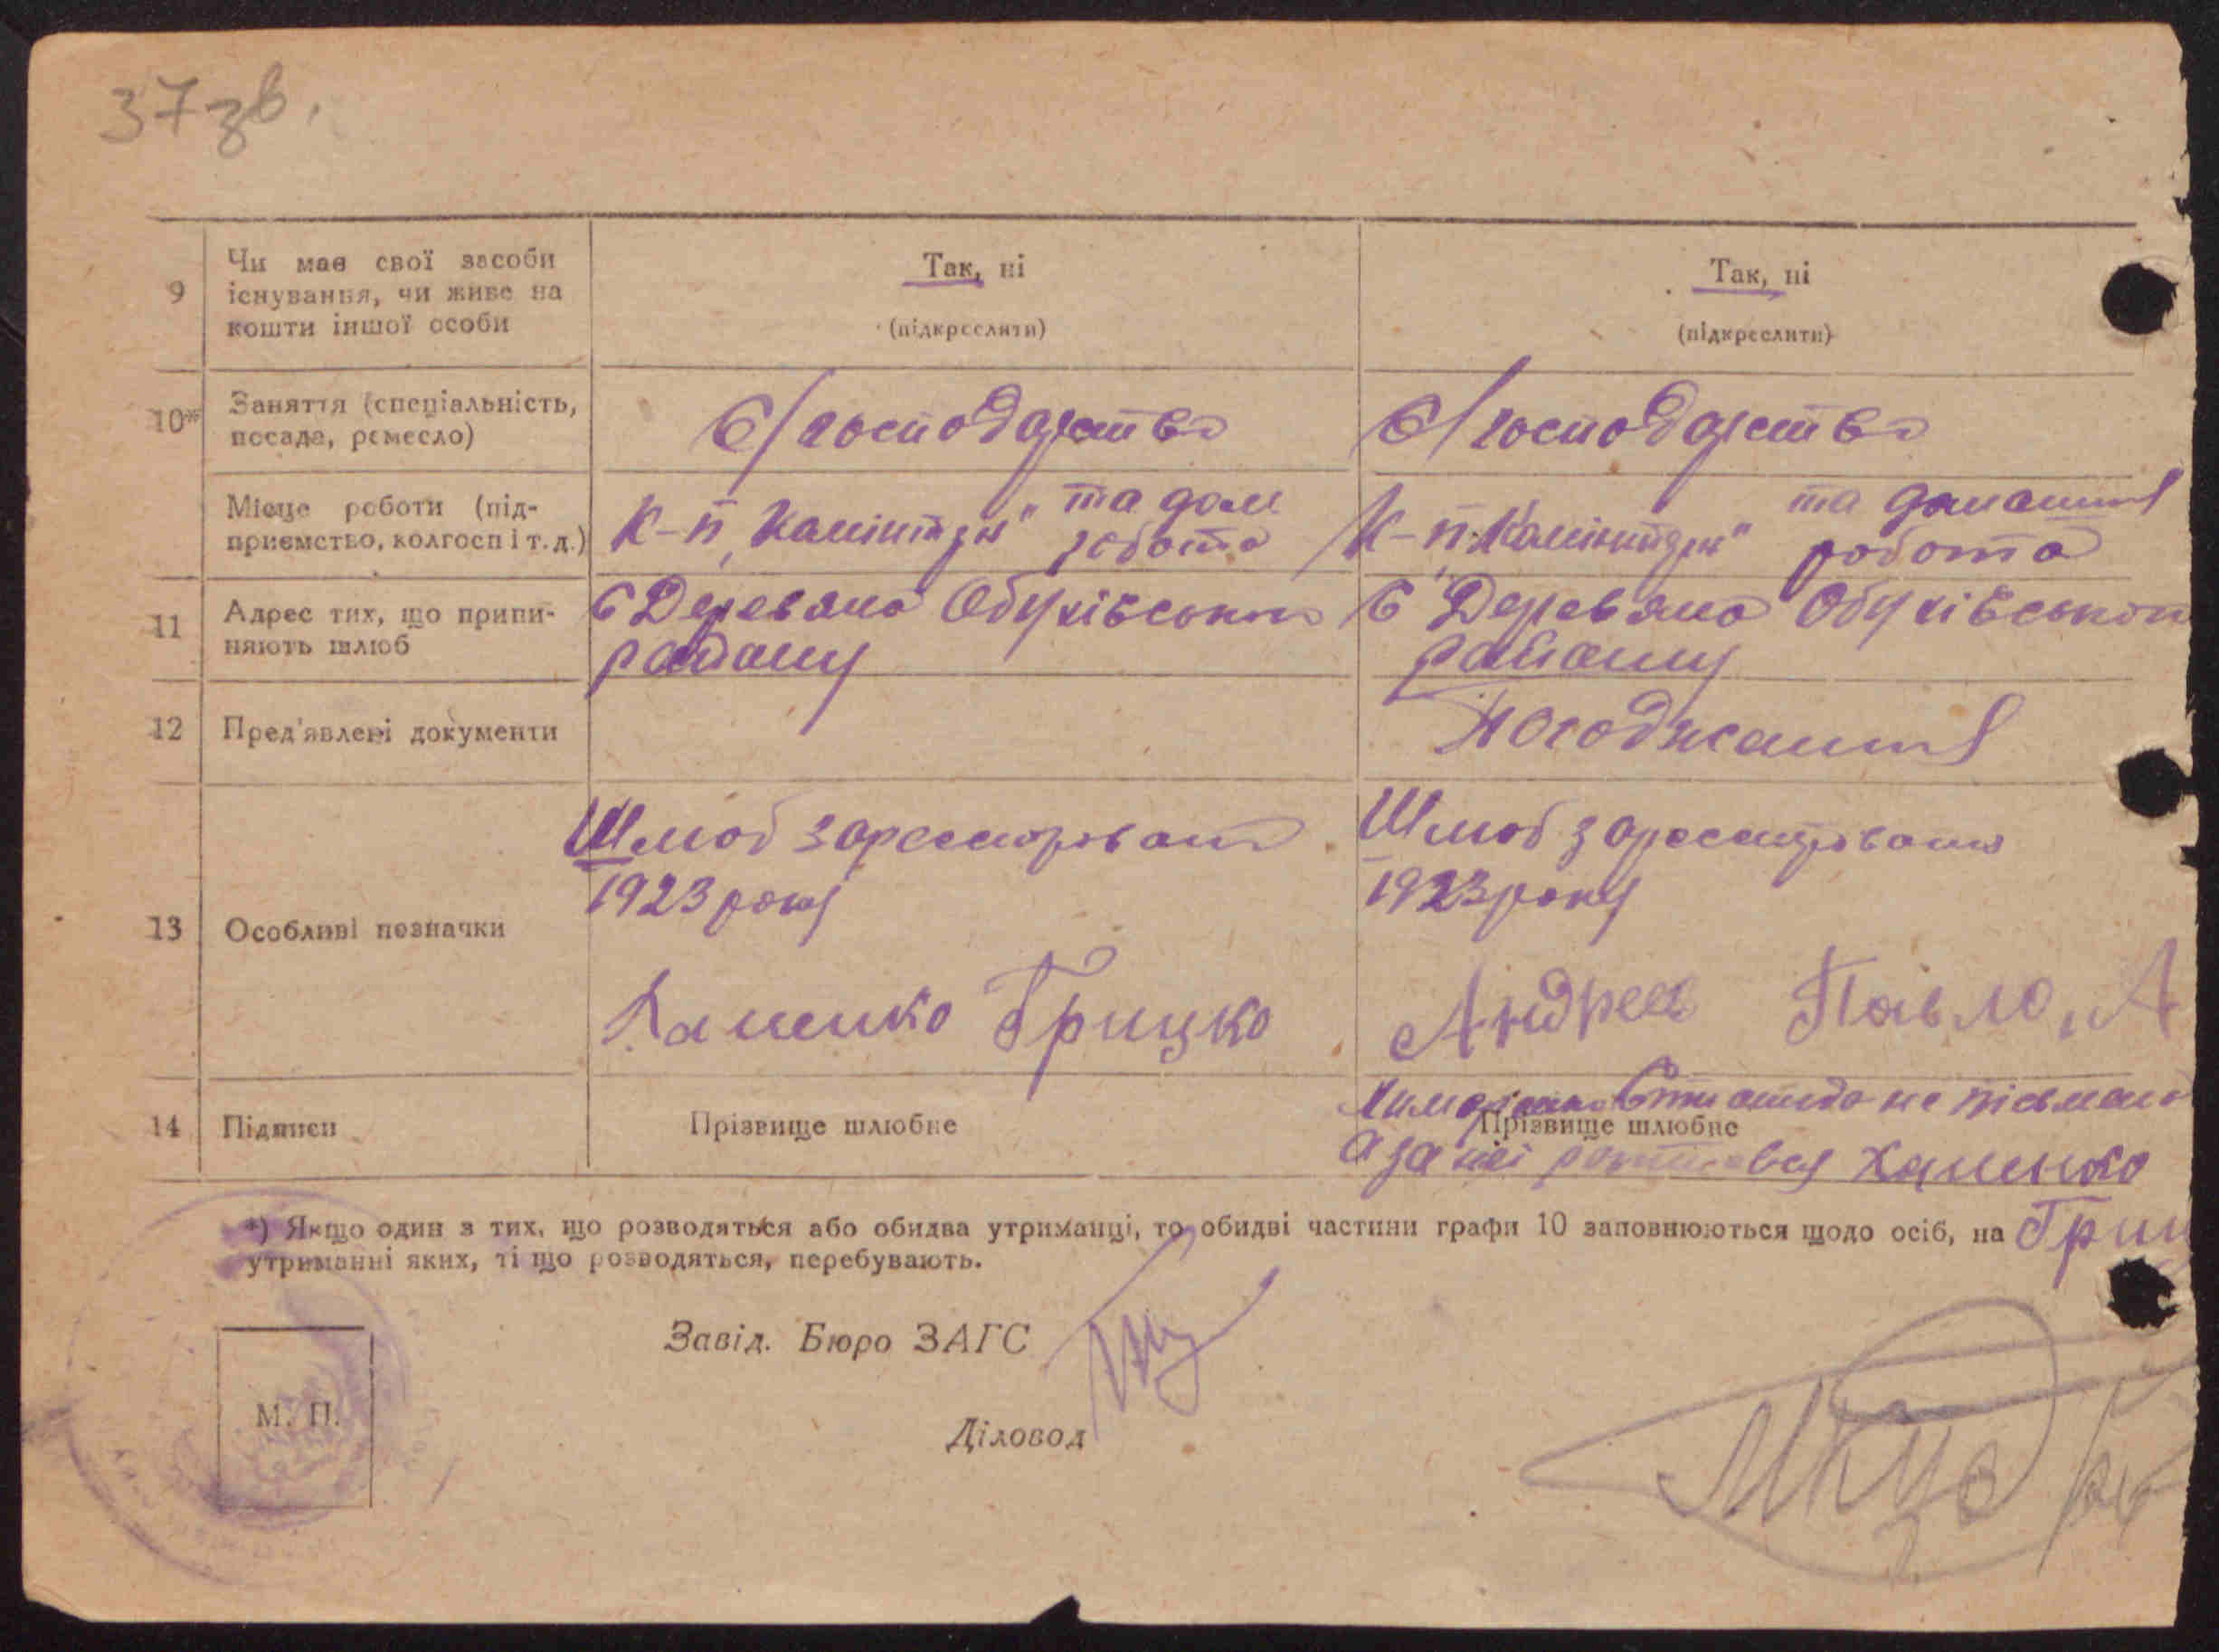 37 зв.
9
Чи має свої засоби
існування, чи живе на
кошти іншої особи
Так, ні
(підкреслити)
Так, ні
(підкреслити)
10*
Заняття (спеціальність,
посада, ремесло)
С/господарство
С/господарство
Місце роботи (під-
приємство, колгосп і т. д.)
К-п „Комінтерн" та дом
робота
К-п „Комінтерн" та домашня
робота
11
Адрес тих, що припи-
няють шлюб
С Деревяна Обухівського
району
С Деревяна Обухівського
району
12
Пред'явлені документи
Погодження
13
Особливі позначки
Шлюб
1923 року
Шлюб
1923 року
Хаменко Грицько
Андрей Павло, А
14
Підписи
Прізвище шлюбне
не
Прізвище шлюбне
а за неї Хаменко
Гриц
*) Якщо один з тих, що розводяться або обидва утриманці, то обидві частини графи 10 заповнюються щодо осіб, на
утриманні яких, ті що розводяться, перебувають.
Завід. Бюро ЗАГС
М. П.
Діловод